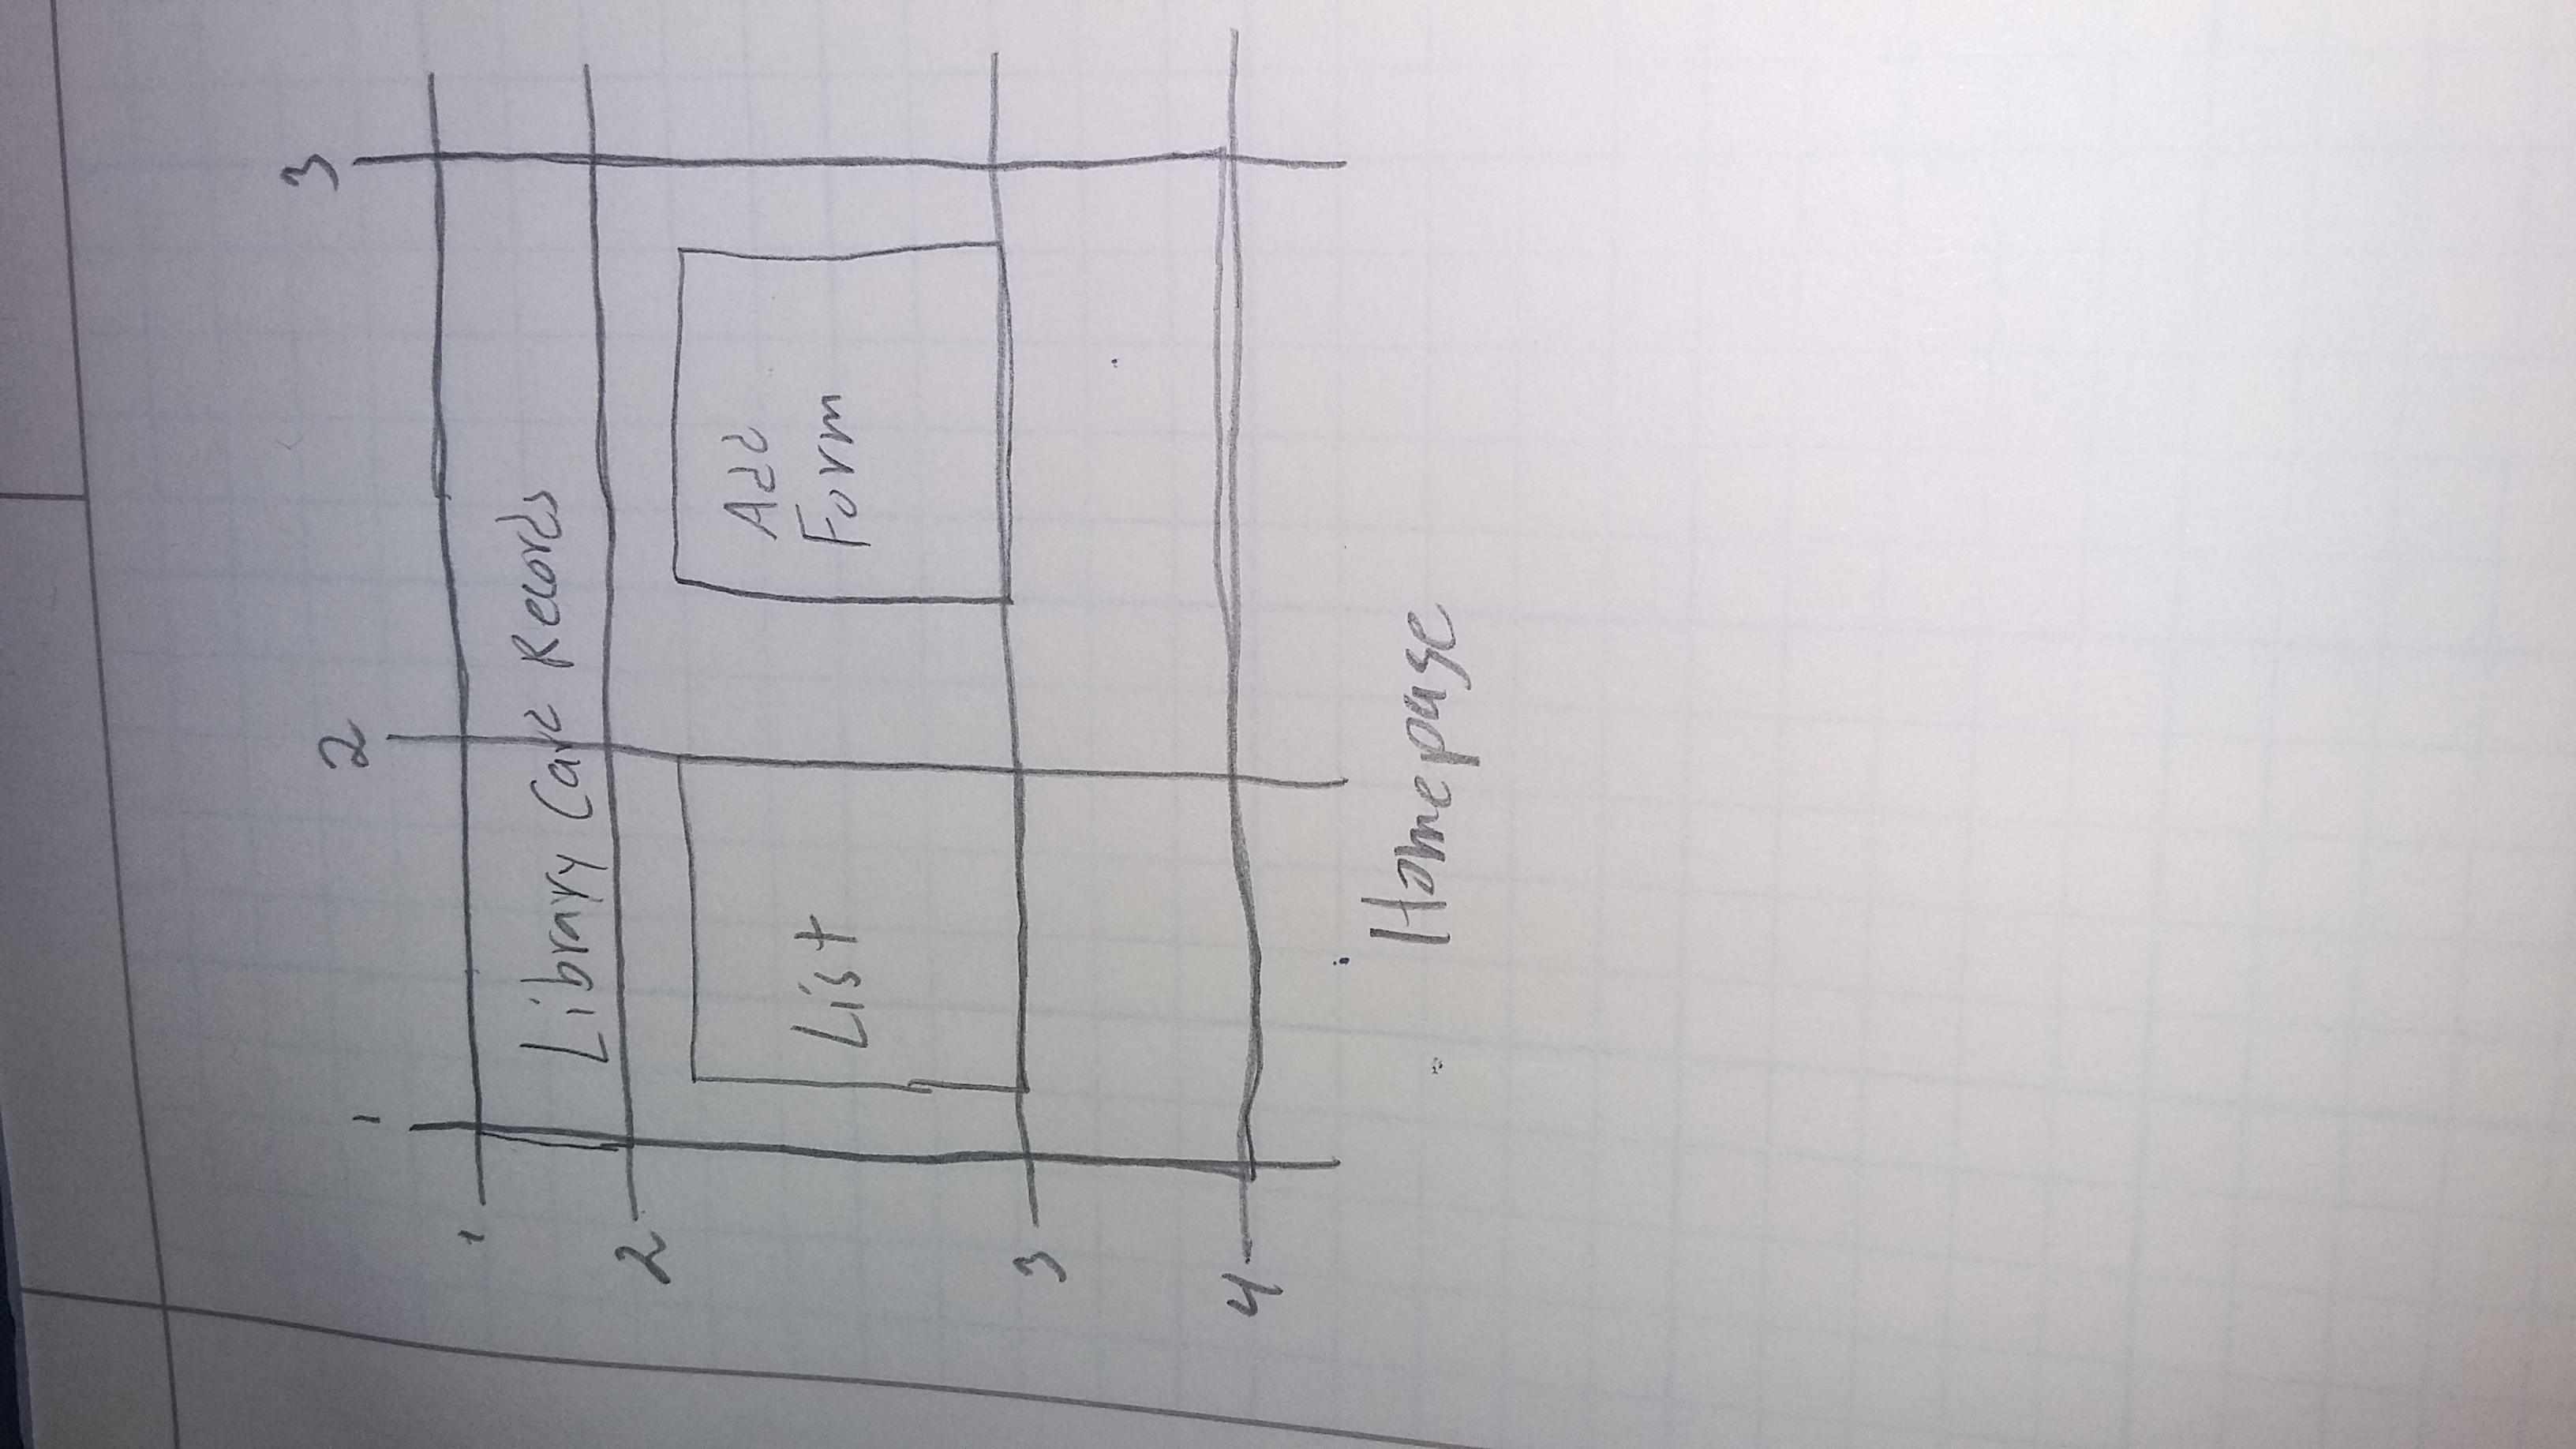 1 2 3
1
Library Card Records
2
List
Add
Form
3
4
Homepage